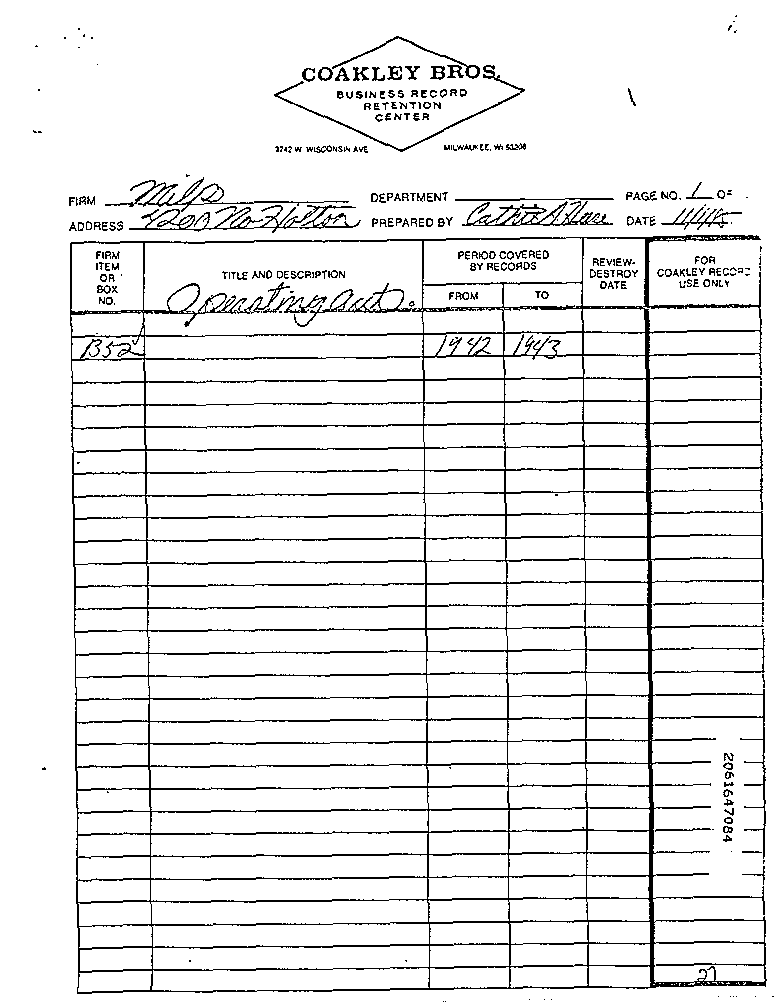 COAKLEY BROS.
BUSINESS RECORD
RETENTION
CENTER
3742 W. WISCONSIN AVE MILWAUKEE, WI 53208
FIRM Milp DEPARTMENT PAGE NO. 1 OF
ADDRESS 4200 No Holton PREPARED BY Cathie A DATE 11/1/85
FIRM ITEM OR BOX NO.
TITLE AND DESCRIPTION
Operating
PERIOD COVERED BY RECORDS
FROM TO
REVIEW-DESTROY DATE
FOR COAKLEY RECORD USE ONLY
B52 1942 1943
2061647084
27